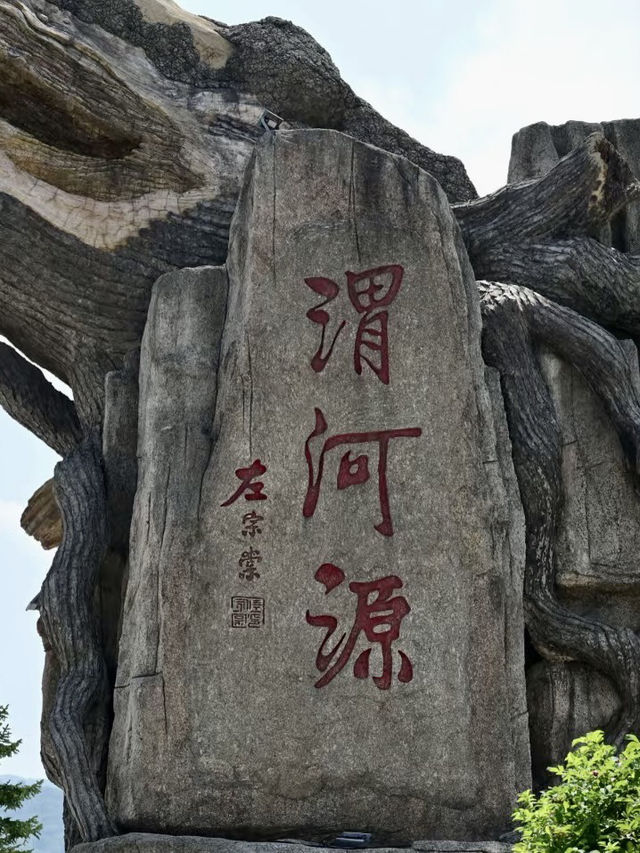 渭河源
左宗棠